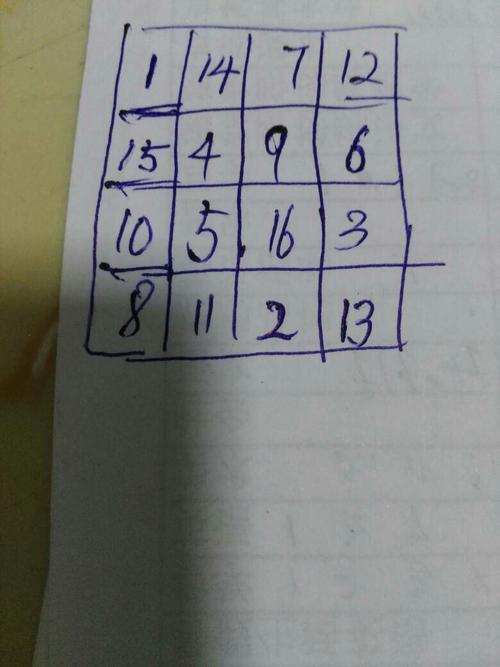 1 14 7 12
15 4 9 6
10 5 16 3
8 11 2 13